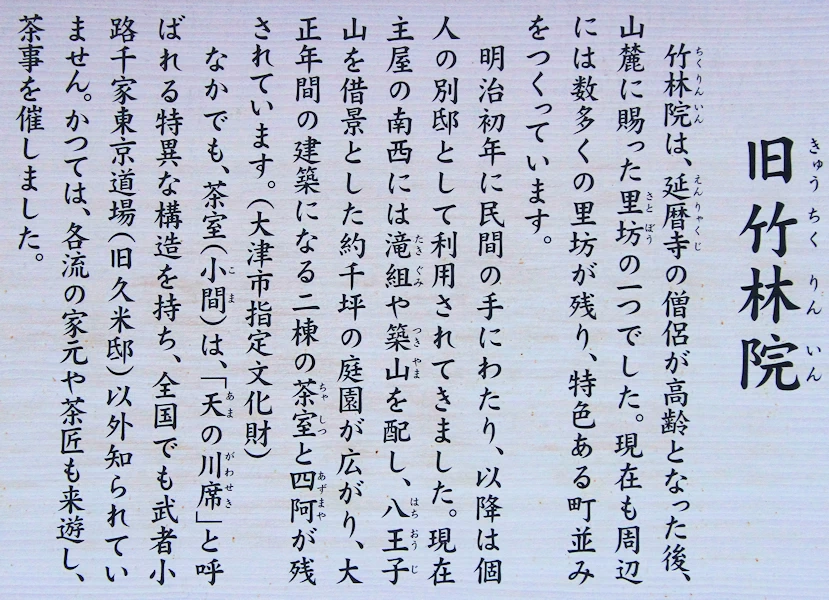 旧竹林院
きゅうちくりんいん
竹林院は、延暦寺の僧侶が高齢となった後、
ちくりんいん えんりゃくじ
山麓に賜った里坊の一つでした。現在も周辺
さとぼう
には数多くの里坊が残り、特色ある町並み
をつくっています。
明治初年に民間の手にわたり、以降は個
人の別邸として利用されてきました。現在
主屋の南西には滝組や築山を配し、八王子
たきぐみ つきやま はちおうじ
山を借景とした約千坪の庭園が広がり、大
正年間の建築になる二棟の茶室と四阿が残
ちゃしつ あずまや
されています。(大津市指定文化財)
なかでも、茶室(小間)は、「天の川席」と呼
こま あま がわせき
ばれる特異な構造を持ち、全国でも武者小
路千家東京道場(旧久米邸)以外知られてい
ません。かつては、各流の家元や茶匠も来遊し、
茶事を催しました。